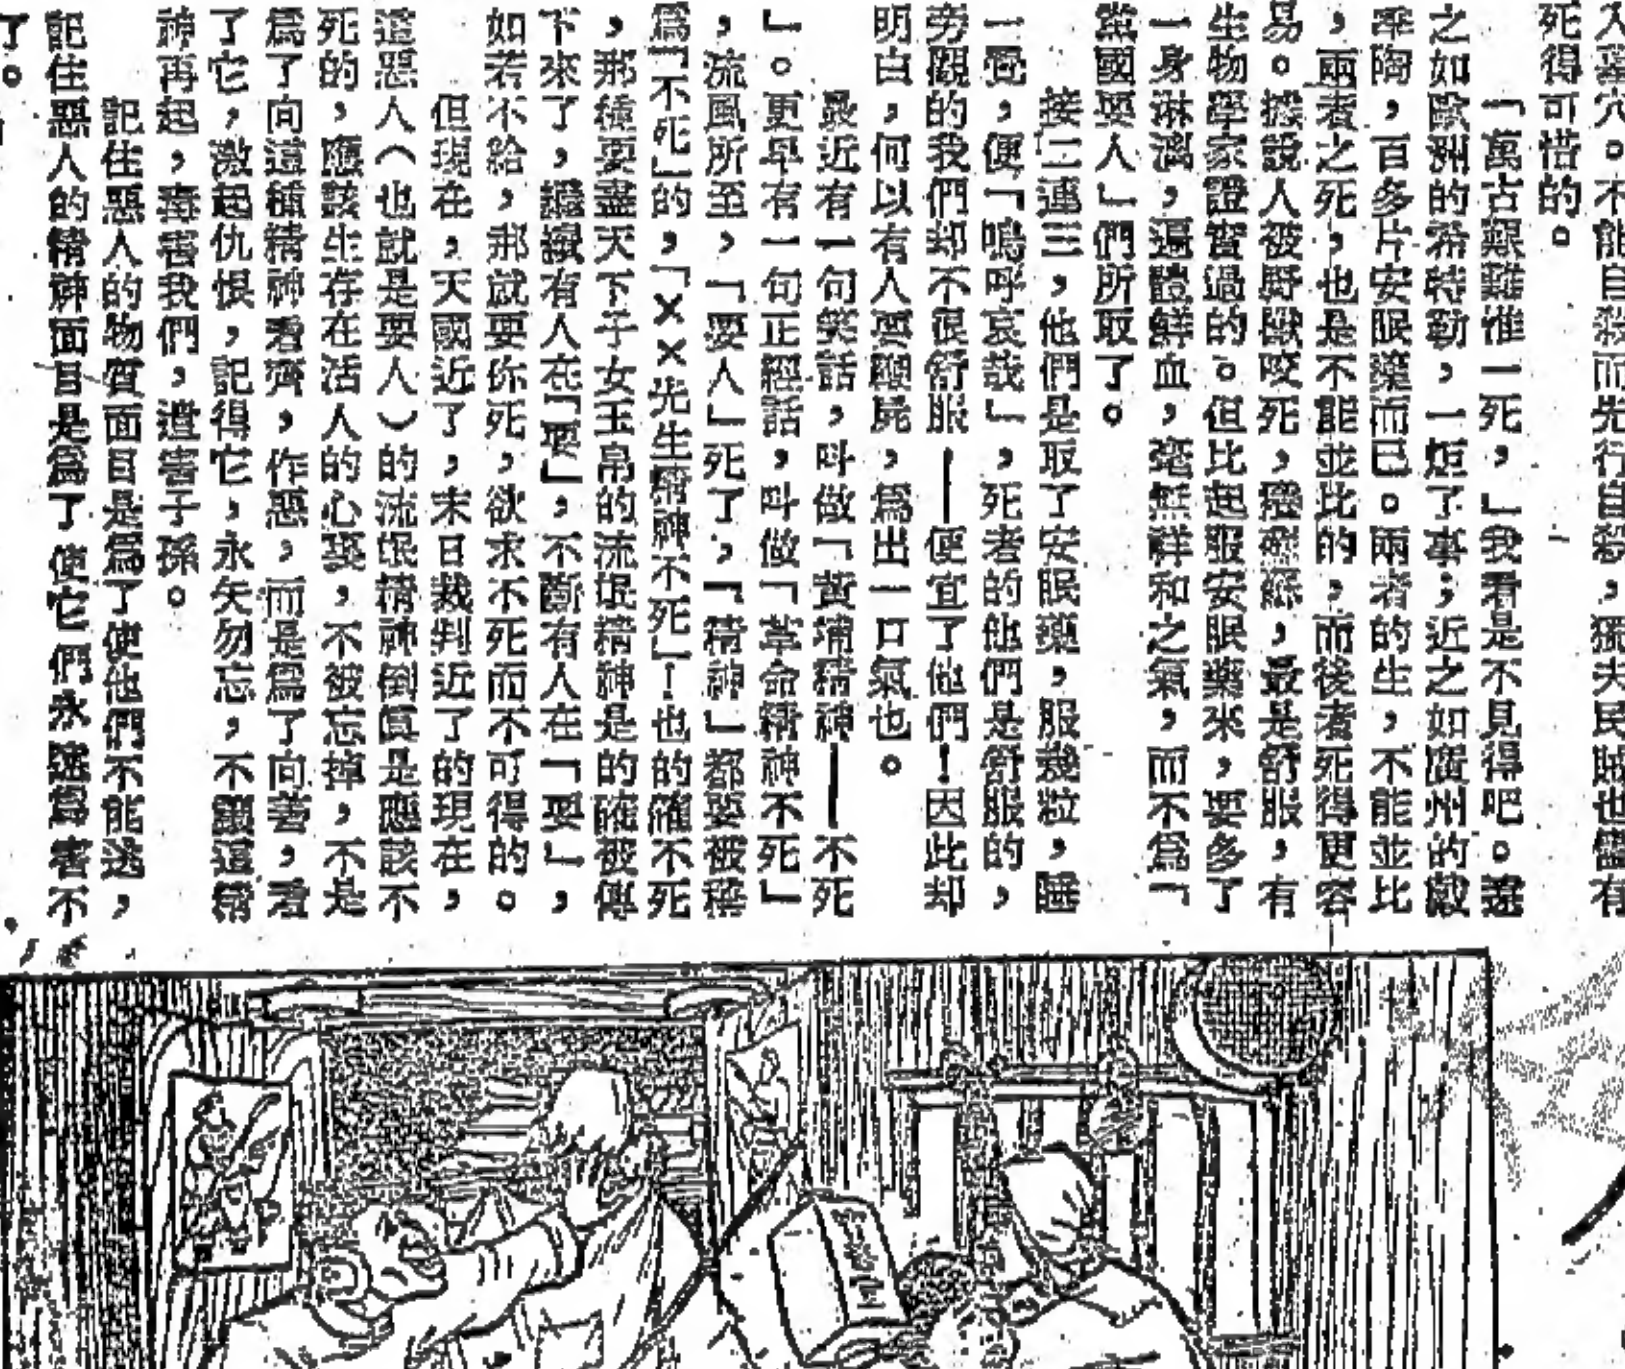 入墓穴。不能自殺而先行自殺，獨夫民賊也儘有
死得可惜的。
「萬古艱難惟一死，」我看是不見得吧。遠
之如歐洲的希特勒，一炬了事；近之如廣州的戴
季陶，百多片安眠藥而已。兩者的生，不能並比
，兩者之死，也是不能並比的，而後者死得更容
易。據說人被野獸咬死，癢癢然，最是舒服，有
生物學家證實過的。但比起服安眠藥來，要多了
一身淋漓，遍體鮮血，毫無祥和之氣，而不爲「
黨國要人」們所取了。
接二連三，他們是取了安眠藥，服幾粒，睡
一覺，便「嗚呼哀哉」，死者的他們是舒服的，
旁觀的我們却不很舒服——便宜了他們！因此却
明白，何以有人要鞭屍，爲出一口氣也。
最近有一句笑話，叫做「黃埔精神——不死
」。更早有一句正經話，叫做「革命精神不死」
，流風所至，「要人」死了，「精神」都要被稱
爲「不死」的，「××先生精神不死」！也的確不死
，那種要盡天下子女玉帛的流氓精神是的確被傳
下來了，讓讓有人在「要」，不斷有人在「要」，
如若不給，那就要你死，欲求不死而不可得的。
但現在，天國近了，末日裁判近了的現在，
這惡人（也就是要人）的流氓精神倒眞是應該不
死的，應該生存在活人的心裏，不被忘掉，不是
爲了向這種精神看齊，作惡，而是爲了向善，看
了它，激起仇恨，記得它，永矢勿忘，不讓這精
神再起，毒害我們，遺害子孫。
記住惡人的物質面目是爲了使他們不能逃，
記住惡人的精神面目是爲了使它們永遠爲害不
了。